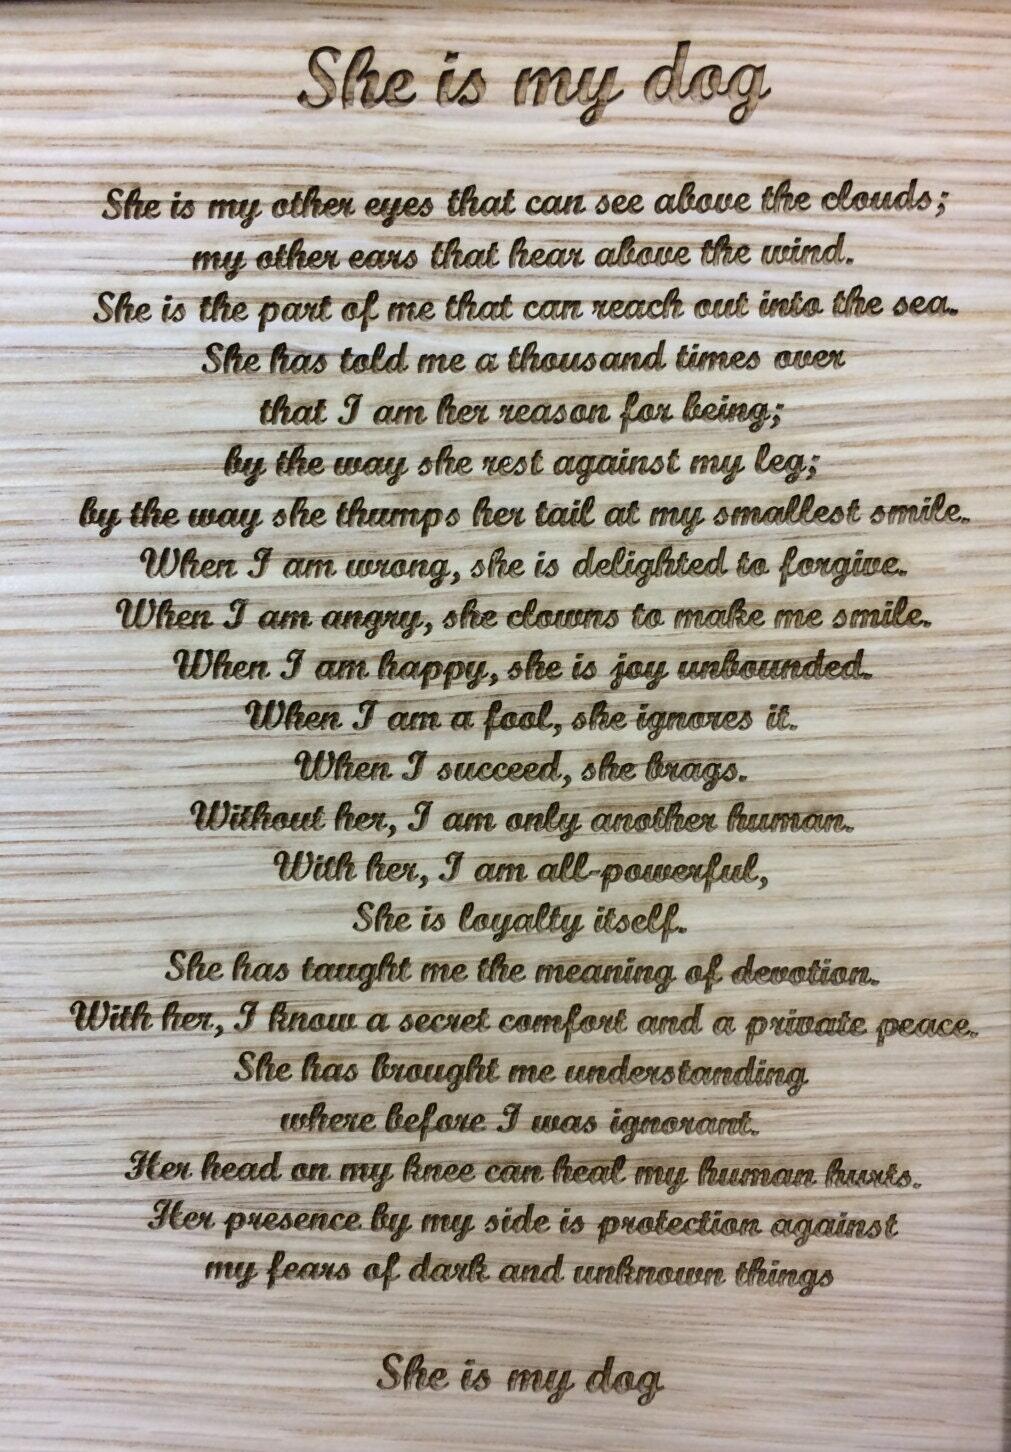 She is my dog
She is my other eyes that can see above the clouds;
my other ears that hear above the wind.
She is the part of me that can reach out into the sea.
She has told me a thousand times over
that I am her reason for being;
by the way she rest against my leg;
by the way she thumps her tail at my smallest smile.
When I am wrong, she is delighted to forgive.
When I am angry, she clowns to make me smile.
When I am happy, she is joy unbounded.
When I am a fool, she ignores it.
When I succeed, she brags.
Without her, I am only another human.
With her, I am all-powerful,
She is loyalty itself.
She has taught me the meaning of devotion.
With her, I know a secret comfort and a private peace.
She has brought me understanding
where before I was ignorant.
Her head on my knee can heal my human hurts.
Her presence by my side is protection against
my fears of dark and unknown things
She is my dog